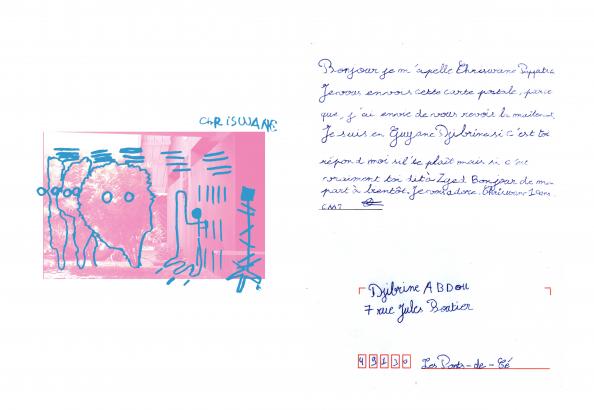 CHRISWANE
Bonjour je m'apelle Chriswane
Je vous envois cette carte postale, parce
que j'ai envie de vous revoir là maitenant
Je suis en Guyane Djibrine si c'est toi
répond moi sil te plaît mais si c'est
vraiment toi dit à Zyed Bonjour de ma
part à bientôt. Je vous adore. Chriswane 10ans
CM2
Djibrine ABDOU
7 rue Jules
49130 Les Ponts-de-Cé